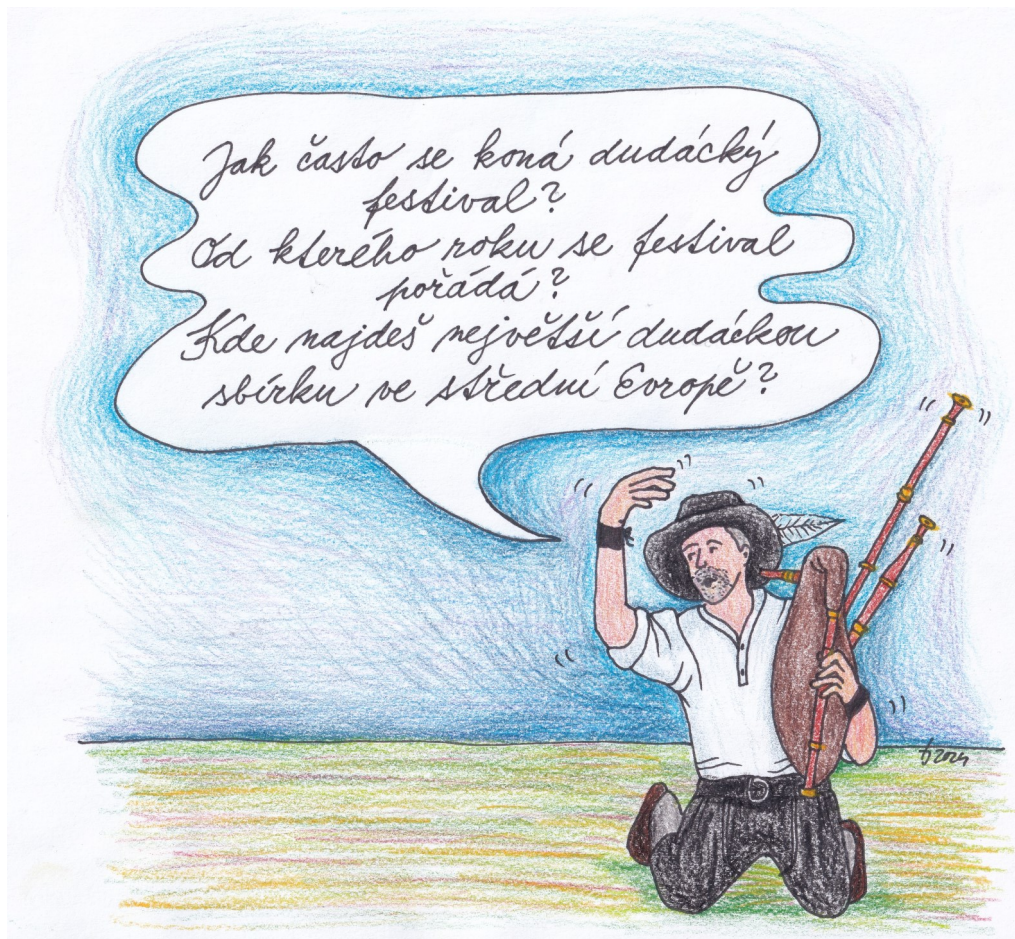 Jak často se koná dudácký
festival?
Od kterého roku se festival
pořádá?
Kde najdeš největší dudáckou
sbírku ve střední Evropě?
2024